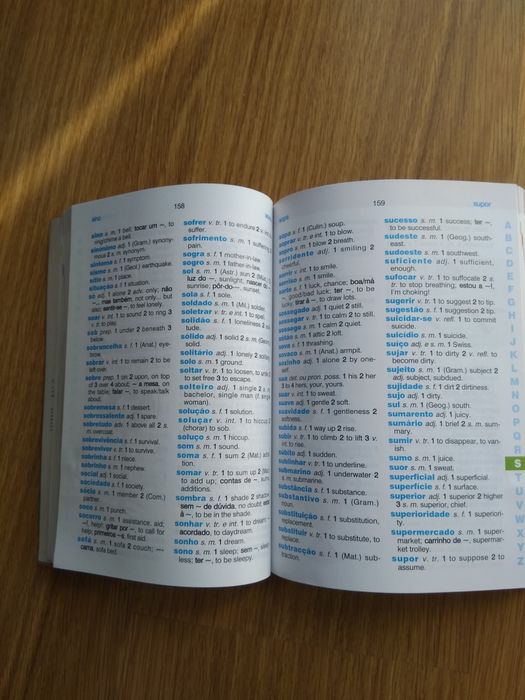 158
sino
sino s. m. 1 bell; tocar um ~, to
ring/chime a bell.
sinónimo adj. 1 (Gram.) synony-
mous 2 s. m. synonym.
sintoma s. f. 1 symptom.
sismo s. m. 1 (Geol.) earthquake.
sítio s. m. 1 place.
situação s. f. 1 situation.
só adj. 1 alone 2 adv. only; não
~, mas também, not only... but
also; sentir-se ~, to feel lonely.
soar v. intr. 1 to sound 2 to ring 3
v. tr. to play.
sob prep. 1 under 2 beneath 3
below.
sobrancelha s. f. 1 (Anat.) eye-
brow.
sobrar v. intr. 1 to remain 2 to be
left over.
sobre prep. 1 on 2 upon, on top
of 3 over 4 about; ~ a mesa, on
the table; falar ~, to speak/talk
about.
sobremesa s. f. 1 dessert.
sobressalente adj. 1 spare.
sobretudo adv. 1 above all 2 s.
m. overcoat.
sobrevivência s. f. 1 survival.
sobreviver v. tr. 1 to survive.
sobrinha s. f. 1 niece.
sobrinho s. m. 1 nephew.
social adj. 1 social.
sociedade s. f. 1 society.
sócio s. m. 1 member 2 (Com.)
partner.
soco s. m. 1 punch.
socorro s. m. 1 assistance, aid;
~!, help!; gritar por ~, to call for
help; primeiros ~s, first aid.
sofá s. m. 1 sofa 2 couch; ~-
cama, sofa bed.
sofrer v. tr. 1 to endure 2 v. intr. to
suffer.
sofrimento s. m. 1 suffering 2
pain.
sogra s. f. 1 mother-in-law.
sogro s. m. 1 father-in-law.
sol s. m. 1 (Astr.) sun 2 (Mús.)
luz do ~, sunlight; nascer do ~,
sunrise; pôr-do-~, sunset.
sola s. f. 1 sole.
soldado s. m. 1 (Mil.) soldier.
soletrar v. tr. e intr. 1 to spell.
solidão s. f. 1 loneliness 2 soli-
tude.
sólido adj. 1 solid 2 s. m. (Geom.)
solid.
solitário adj. 1 lonely 2 solitary.
solo s. m. 1 ground.
soltar v. tr. 1 to loosen, to untie 2
to set free 3 to escape.
solteiro adj. 1 single 2 s. m.
bachelor, single man (f. single
woman).
solução s. f. 1 solution.
soluçar v. intr. 1 to hiccup 2
(chorar) to sob.
soluço s. m. 1 hiccup.
som s. m. 1 sound.
soma s. f. 1 sum 2 (Mat.) addi-
tion.
somar v. tr. 1 to sum up 2 (Mat.)
to add up; contas de ~, sums,
additions.
sombra s. f. 1 shade 2 shadow;
sem ~ de dúvida, no doubt; estar
à ~, to be in the shade.
sonhar v. tr. e intr. 1 to dream; ~
acordado, to daydream.
sonho s. m. 1 dream.
sono s. m. 1 sleep; sem ~, sleep-
less; ter ~, to be sleepy.
159
supor
sopa s. f. 1 (Culin.) soup.
soprar v. tr. e intr. 1 to blow.
sopro s. m. 1 blow 2 breath.
sorridente adj. 1 smiling 2
cheerful.
sorrir v. intr. 1 to smile.
sorriso s. m. 1 smile.
sorte s. f. 1 luck, chance; boa/má
~, good/bad luck; ter ~, to be
lucky; tirar à ~, to draw lots.
sossegado adj. 1 quiet 2 still.
sossegar v. tr. 1 to calm 2 to still.
sossego s. m. 1 calm 2 quiet.
sótão s. m. 1 attic 2 loft.
sova s. f. 1 thrashing.
sovaco s. m. 1 (Anat.) armpit.
sozinho adj. 1 alone 2 by one-
self.
sua det. ou pron. poss. 1 his 2 her
3 its 4 hers, your, yours.
suar v. intr. 1 to sweat.
suave adj. 1 gentle 2 soft.
suavidade s. f. 1 gentleness 2
softness.
subida s. f. 1 way up 2 rise.
subir v. tr. 1 to climb 2 to lift 3 v.
intr. to rise.
súbito adj. 1 sudden.
sublinhar v. tr. 1 to underline.
submarino adj. 1 underwater 2
s. m. submarine.
substância s. f. 1 substance.
substantivo s. m. 1 (Gram.)
noun.
substituição s. f. 1 substitution,
replacement.
substituir v. tr. 1 to substitute, to
replace.
subtracção s. f. 1 (Mat.) sub-
traction.
sucesso s. m. 1 success; ter ~,
to be successful.
sudeste s. m. 1 (Geog.) south-
east.
sudoeste s. m. 1 southwest.
suficiente adj. 1 sufficient,
enough.
sufocar v. tr. 1 to suffocate 2 v.
tr. to stop breathing; estou a ~!,
I'm choking!
sugerir v. tr. 1 to suggest 2 to tip.
sugestão s. f. 1 suggestion 2 tip.
suicidar-se v. refl. 1 to commit
suicide.
suicídio s. m. 1 suicide.
suíço adj. e s. m. 1 Swiss.
sujar v. tr. 1 to dirty 2 v. refl. to
become dirty.
sujeito s. m. 1 (Gram.) subject 2
adj. subject, subdued.
sujidade s. f. 1 dirt 2 dirtiness.
sujo adj. 1 dirty.
sul s. m. 1 (Geog.) south.
sumarento adj. 1 juicy.
sumário adj. 1 brief 2 s. m. sum-
mary.
sumir v. tr. 1 to disappear, to van-
ish.
sumo s. m. 1 juice.
suor s. m. 1 sweat.
superficial adj. 1 superficial.
superfície s. f. 1 surface.
superior adj. 1 superior 2 higher
3 s. m. superior, chief.
superioridade s. f. 1 superiori-
ty.
supermercado s. m. 1 super-
market; carrinho de ~, supermar-
ket trolley.
supor v. tr. 1 to suppose 2 to
assume.
A
B
C
D
E
F
G
H
I
J
K
L
M
N
O
P
Q
R
S
T
U
V
W
X
Y
Z